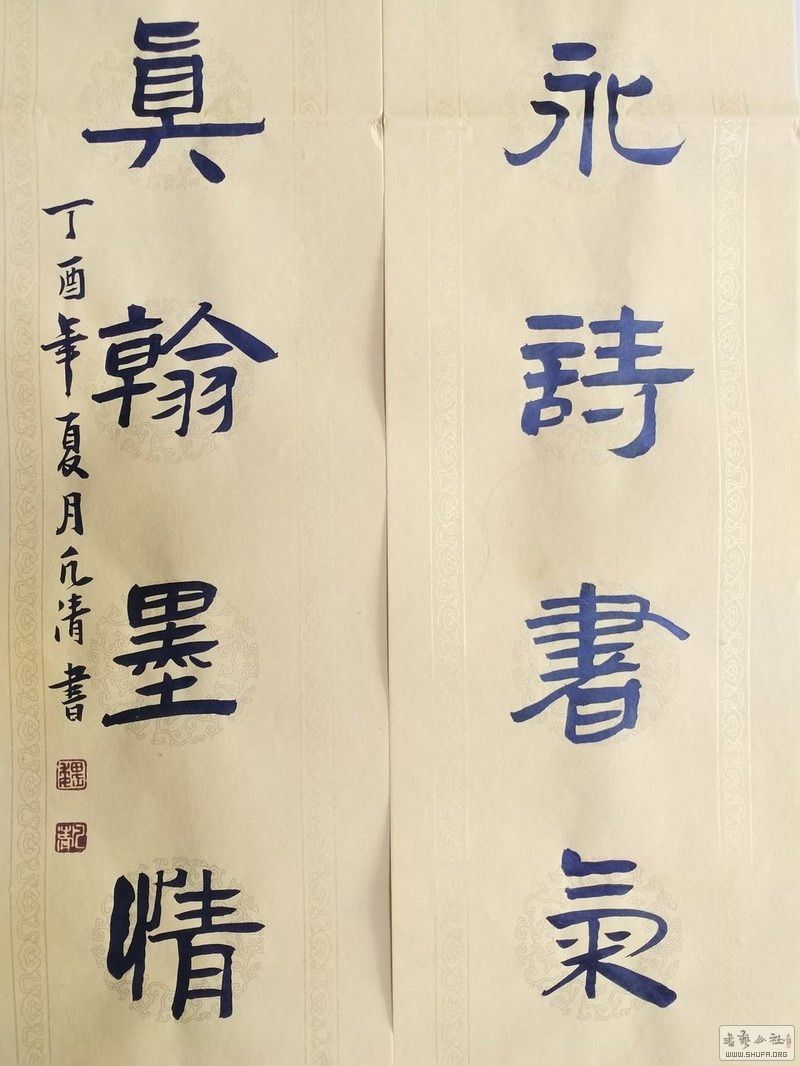 永詩書氣
真翰墨情
丁酉年夏月凡清書
書藝公社
WWW.SHUFA.ORG